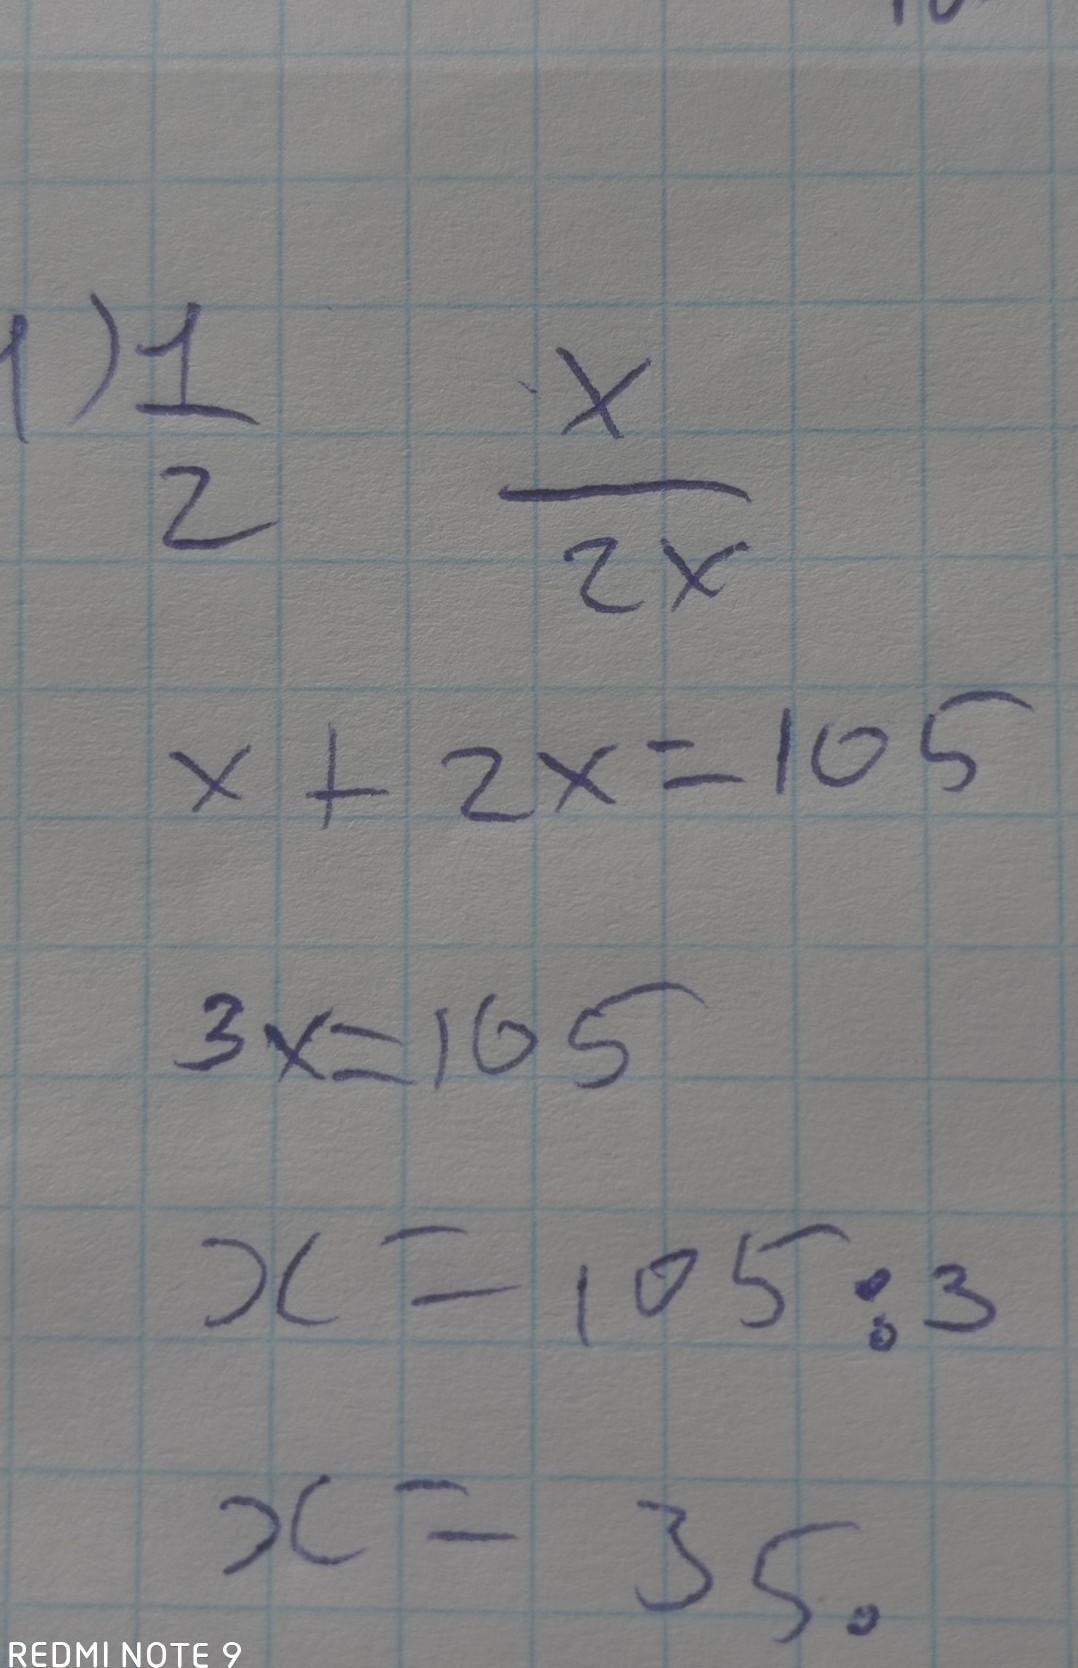 1) 1/2   x/2x
x + 2x = 105
3x = 105
x = 105 : 3
x = 35.
REDMI NOTE 9